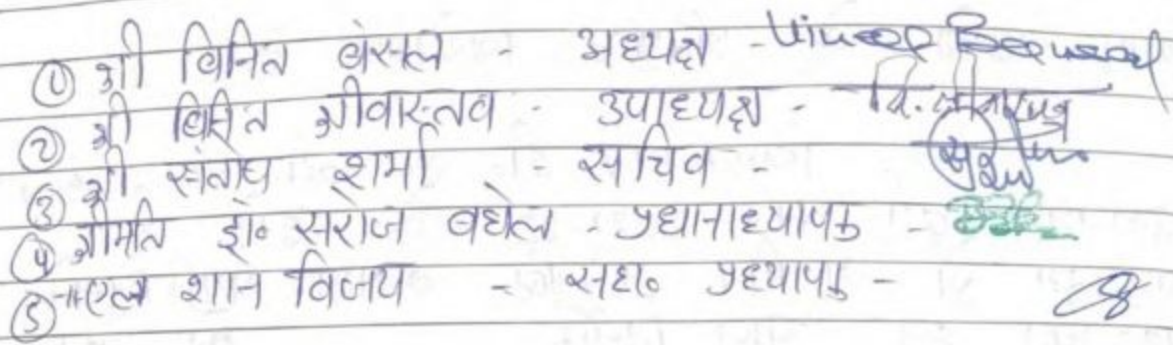 ① श्री विनित बंसल - अध्यक्ष -
② श्री विनित श्रीवास्तव - उपाध्यक्ष - वि. श्रीवास्तव
③ श्री संतोष शर्मा - सचिव -
④ श्रीमति डॉ॰ सरोज बघेल - प्रधानाध्यापक -
⑤ शान विजय - सहा॰ प्रध्यापक -